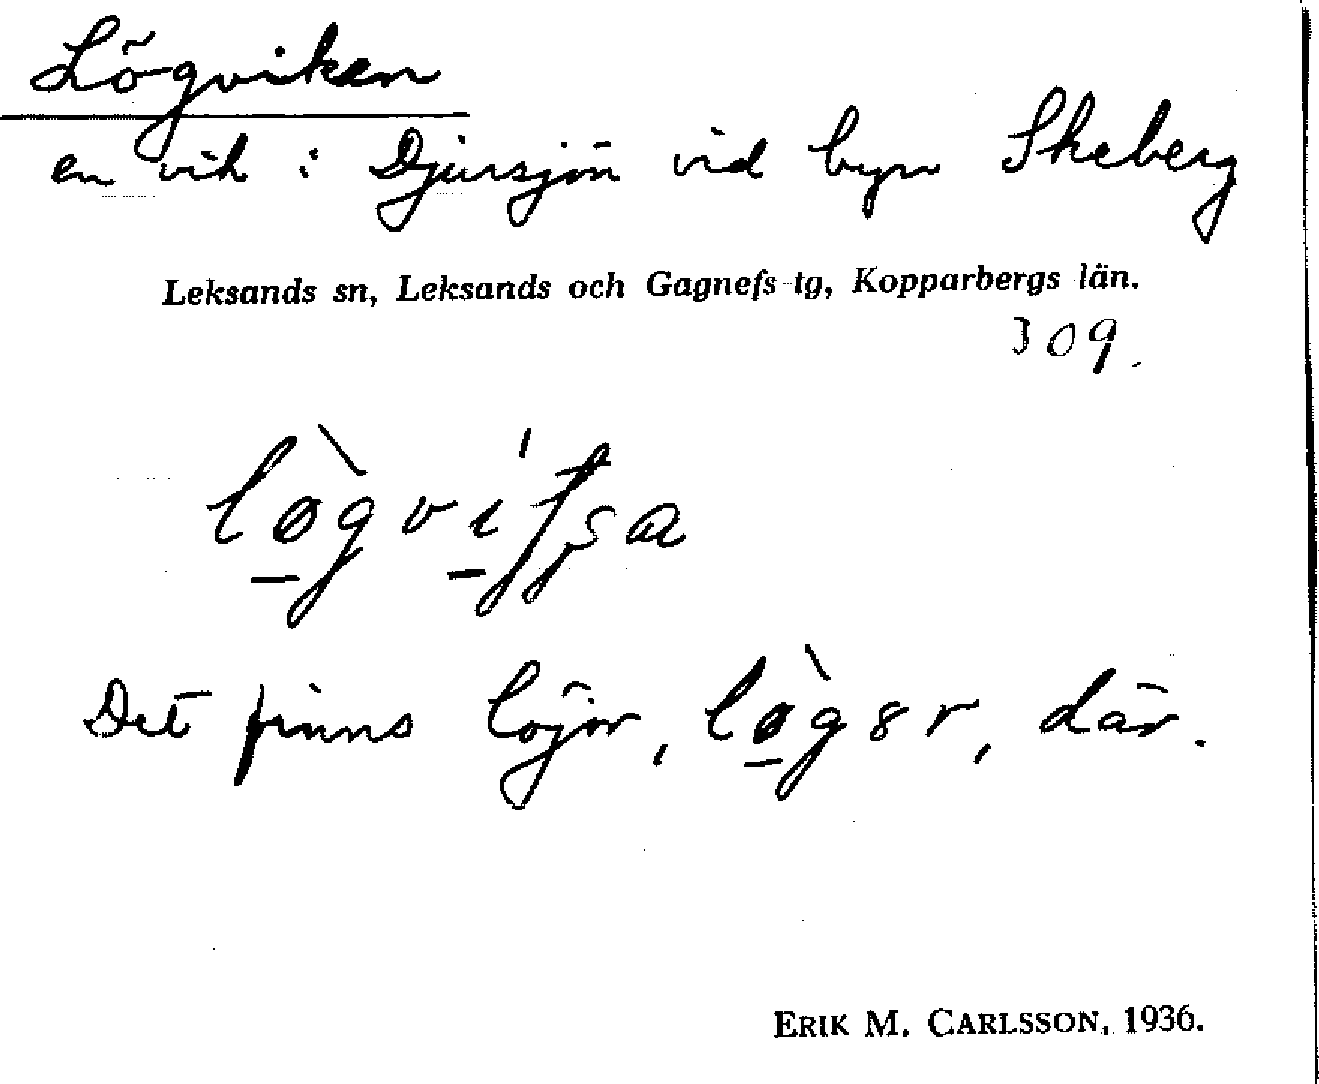 Lögviken
en vik i Djursjön vid byn Skeberg
Leksands sn, Leksands och Gagnefs tg, Kopparbergs län.
309.
Det finns löjor, där.
ERIK M. CARLSSON, 1936.